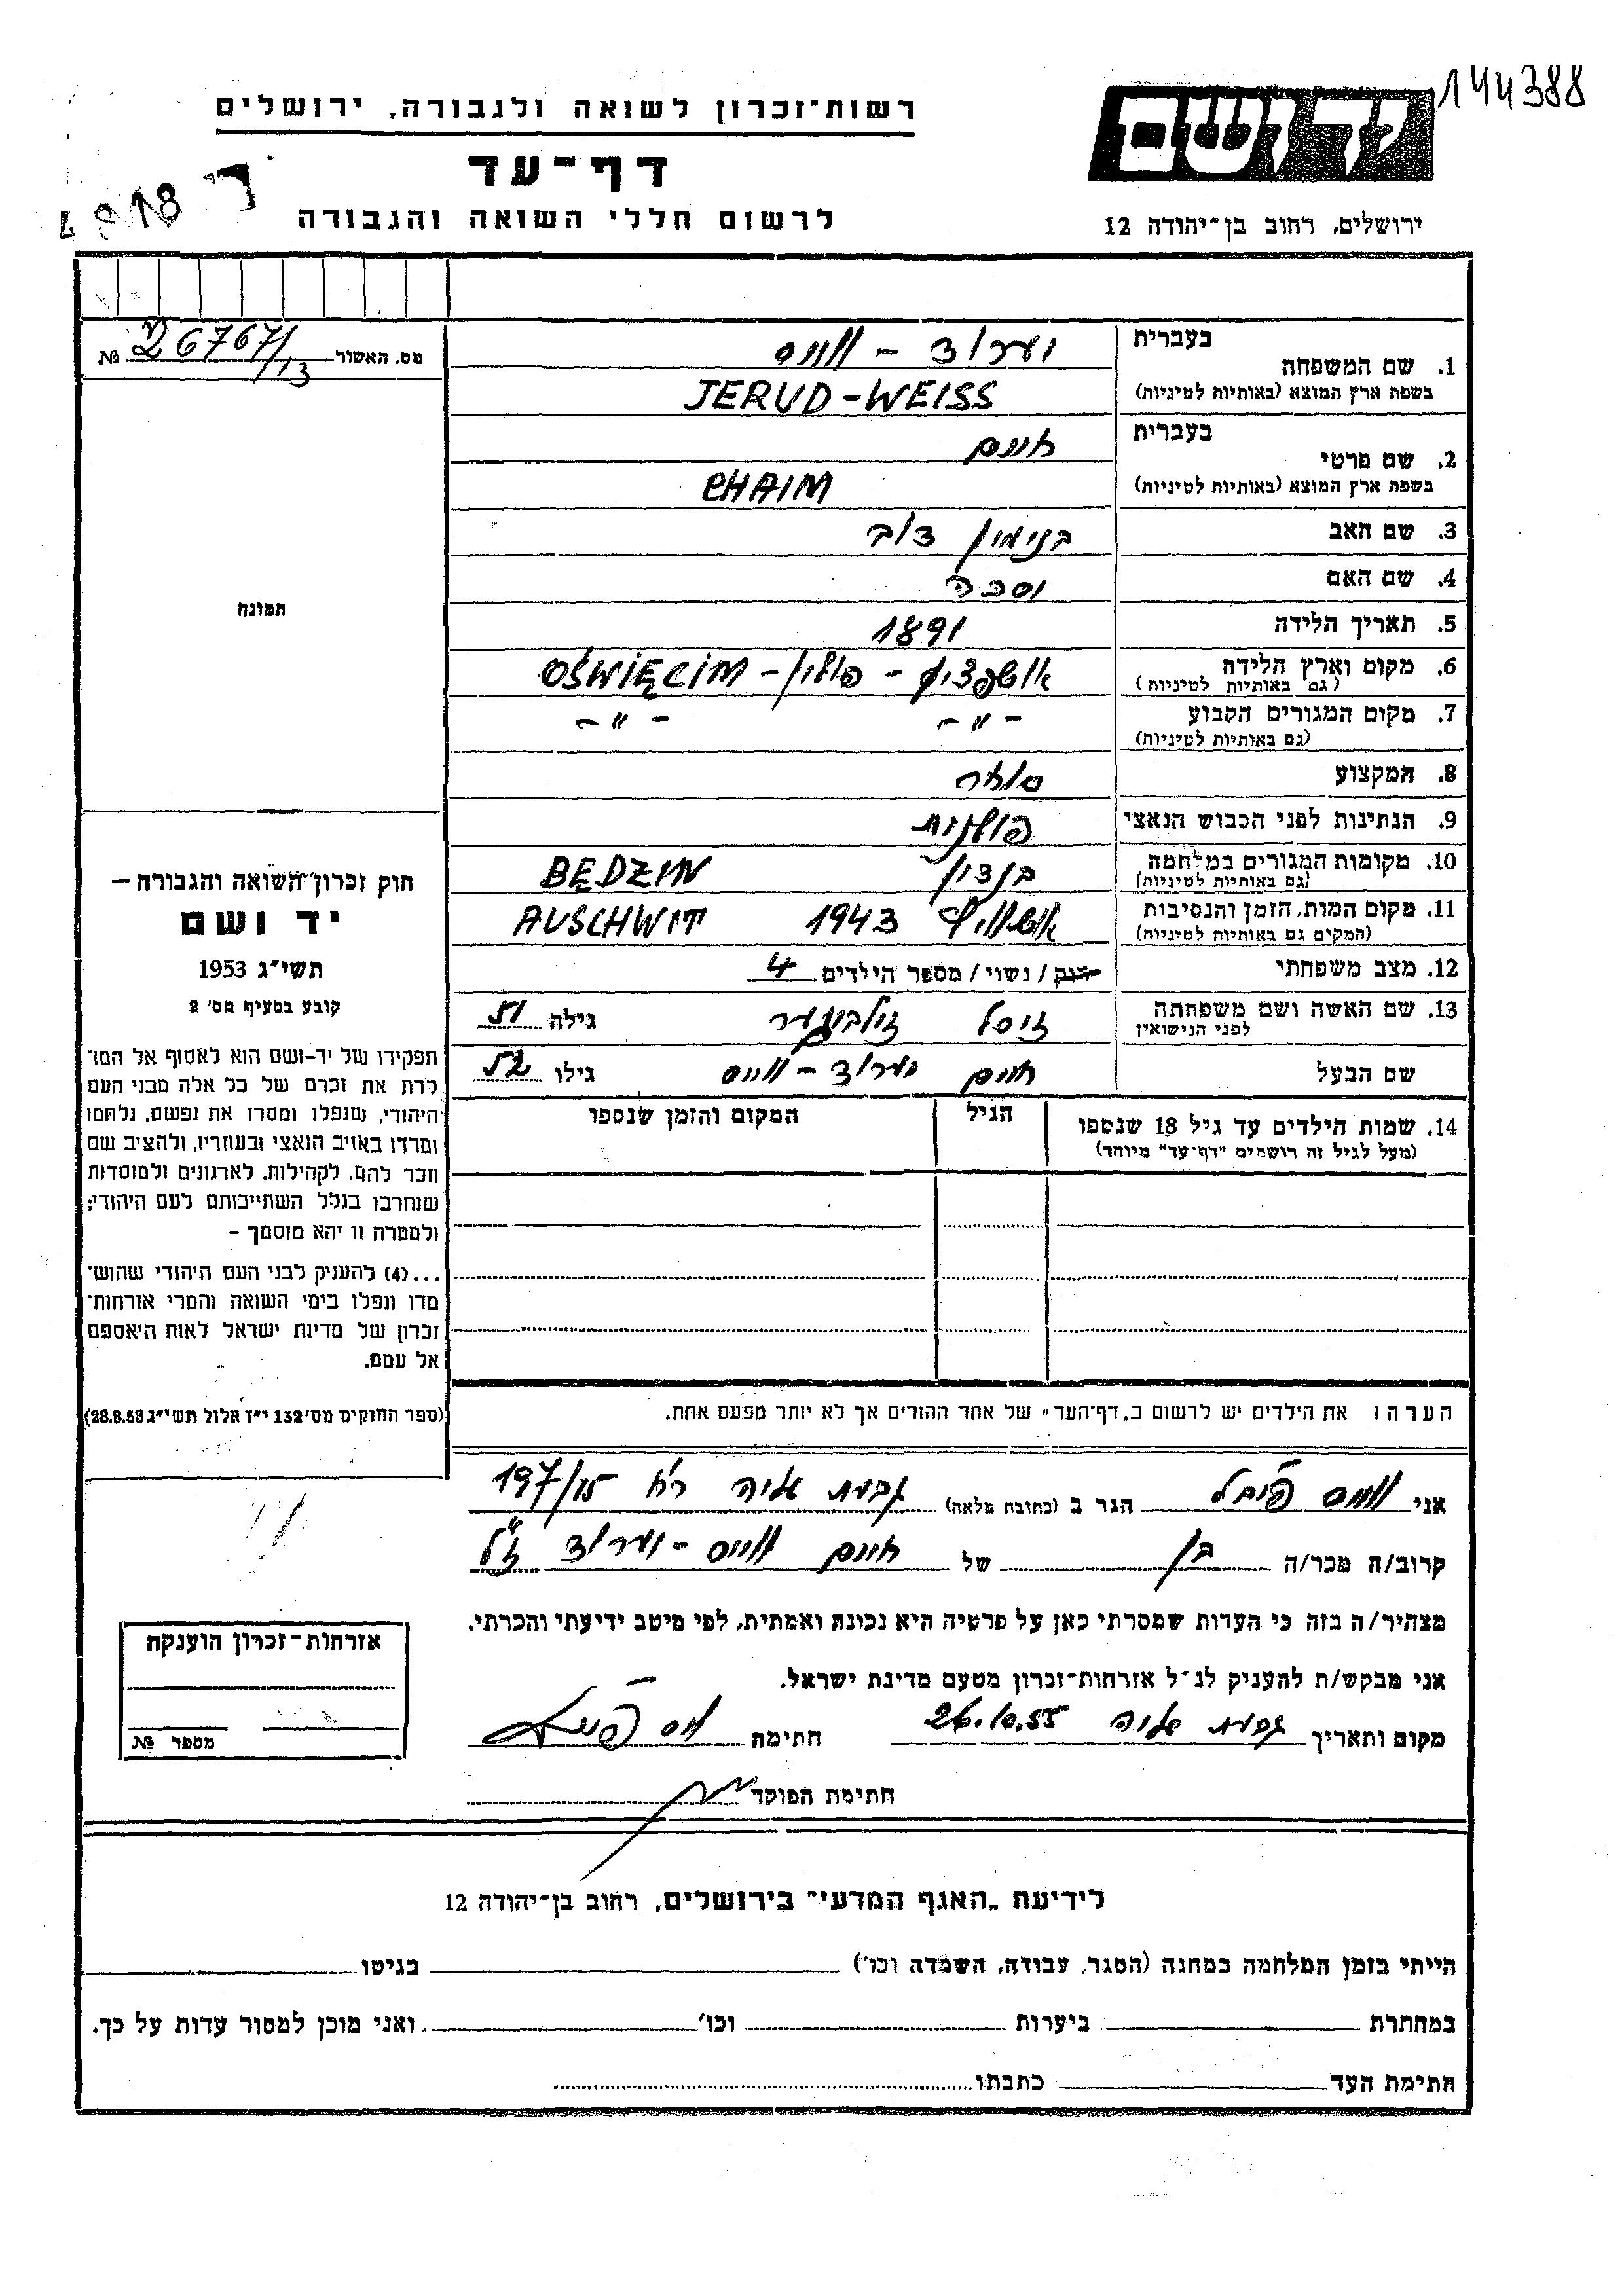 144388
יד ושם
רשות־זכרון לשואה ולגבורה, ירושלים
דף־עד
לרשום חללי השואה והגבורה
ירושלים, רחוב בן־יהודה 12
מס. האשור 26767/13 №
בעברית יערוד - ווייס
1. שם המשפחה
בשפת ארץ המוצא (באותיות לטיניות) JERUD-WEISS
בעברית חיים
2. שם פרטי
בשפת ארץ המוצא (באותיות לטיניות) CHAIM
3. שם האב בנימין
4. שם האם
5. תאריך הלידה 1891
6. מקום וארץ הלידה - פולין - OŚWIĘCIM
(גם באותיות לטיניות)
7. מקום המגורים הקבוע -"- -"-
(גם באותיות לטיניות)
8. המקצוע סוחר
9. הנתינות לפני הכבוש הנאצי פולנית
10. מקומות המגורים במלחמה בנדין BĘDZIN
(גם באותיות לטיניות)
11. מקום המות, הזמן והנסיבות אושוויץ 1943 AUSCHWIT
(המקים גם באותיות לטיניות)
12. מצב משפחתי רווק / נשוי / מספר הילדים 4
13. שם האשה ושם משפחתה זיסל גילה 51
לפני הנישואין
שם הבעל חיים יערוד - ווייס גילו 52
14. שמות הילדים עד גיל 18 שנספו הגיל המקום והזמן שנספו
(מעל לגיל זה רושמים "דף־עד" מיוחד)
הערה: את הילדים יש לרשום ב„דף־העד" של אחד ההורים אך לא יותר מפעם אחת.
תמונה
חוק זכרון השואה והגבורה —
יד ושם
תשי"ג 1953
קובע בסעיף מס' 2
תפקידו של יד-ושם הוא לאסוף אל המו־
לדת את זכרם של כל אלה מבני העם
היהודי, שנפלו ומסרו את נפשם, נלחמו
ומרדו באויב הנאצי ובעוזריו, ולהציב שם
וזכר להם, לקהילות, לארגונים ולמוסדות
שנחרבו בגלל השתייכותם לעם היהודי;
ולמטרה זו יהא מוסמך –
...(4) להעניק לבני העם היהודי שהוש־
מדו ונפלו בימי השואה והמרי אזרחות־
זכרון של מדינת ישראל לאות היאספם
אל עמם.
(ספר החוקים מס' 132 י"ז אלול תשי"ג 28.8.53)
אני ווייס פייבל הגר ב (כתובת מלאה) גבעת עליה רח' 197/15
קרוב/ה מכר/ה בן של חיים ווייס - יערוד ז"ל
מצהיר/ה בזה כי העדות שמסרתי כאן על פרטיה היא נכונה ואמתית, לפי מיטב ידיעתי והכרתי.
אני מבקש/ת להעניק לנ"ל אזרחות־זכרון מטעם מדינת ישראל.
מקום ותאריך גבעת עליה 26.10.55 חתימה ווייס פייבל
חתימת הפוקד
אזרחות־זכרון הוענקה
מספר №
לידיעת „האגף המדעי" בירושלים, רחוב בן־יהודה 12
הייתי בזמן המלחמה במחנה (הסגר, עבודה, השמדה וכו') בגיטו
במחתרת ביערות וכו' ואני מוכן למסור עדות על כך.
חתימת העד כתבתו